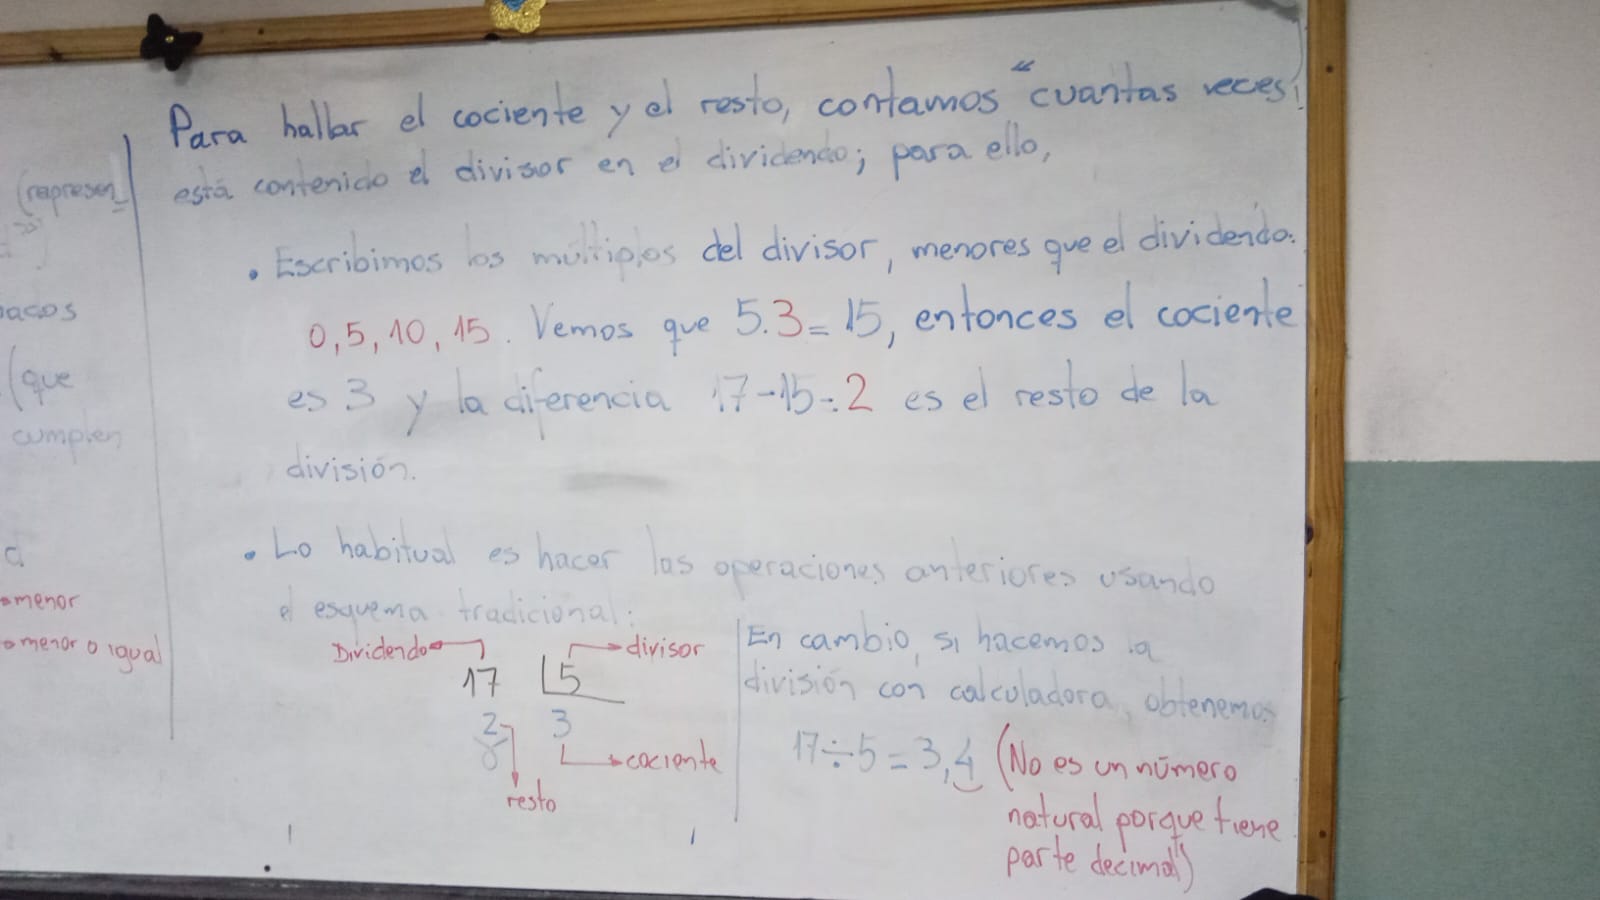 (represen
acos
(que
cumplen
d
menor
menor o igual
Para hallar el cociente y el resto, contamos "cuantas veces"
está contenido el divisor en el dividendo; para ello,
. Escribimos los múltiplos del divisor, menores que el dividendo:
0, 5, 10, 15. Vemos que 5.3=15, entonces el cociente
es 3 y la diferencia 17-15=2 es el resto de la
división.
. Lo habitual es hacer las operaciones anteriores usando
el esquema tradicional:
Dividendo divisor
17 5
2 3
cociente
resto
En cambio, si hacemos la
división con calculadora, obtenemos
17÷5=3,4 (No es un número
natural porque tiene
parte decimal)